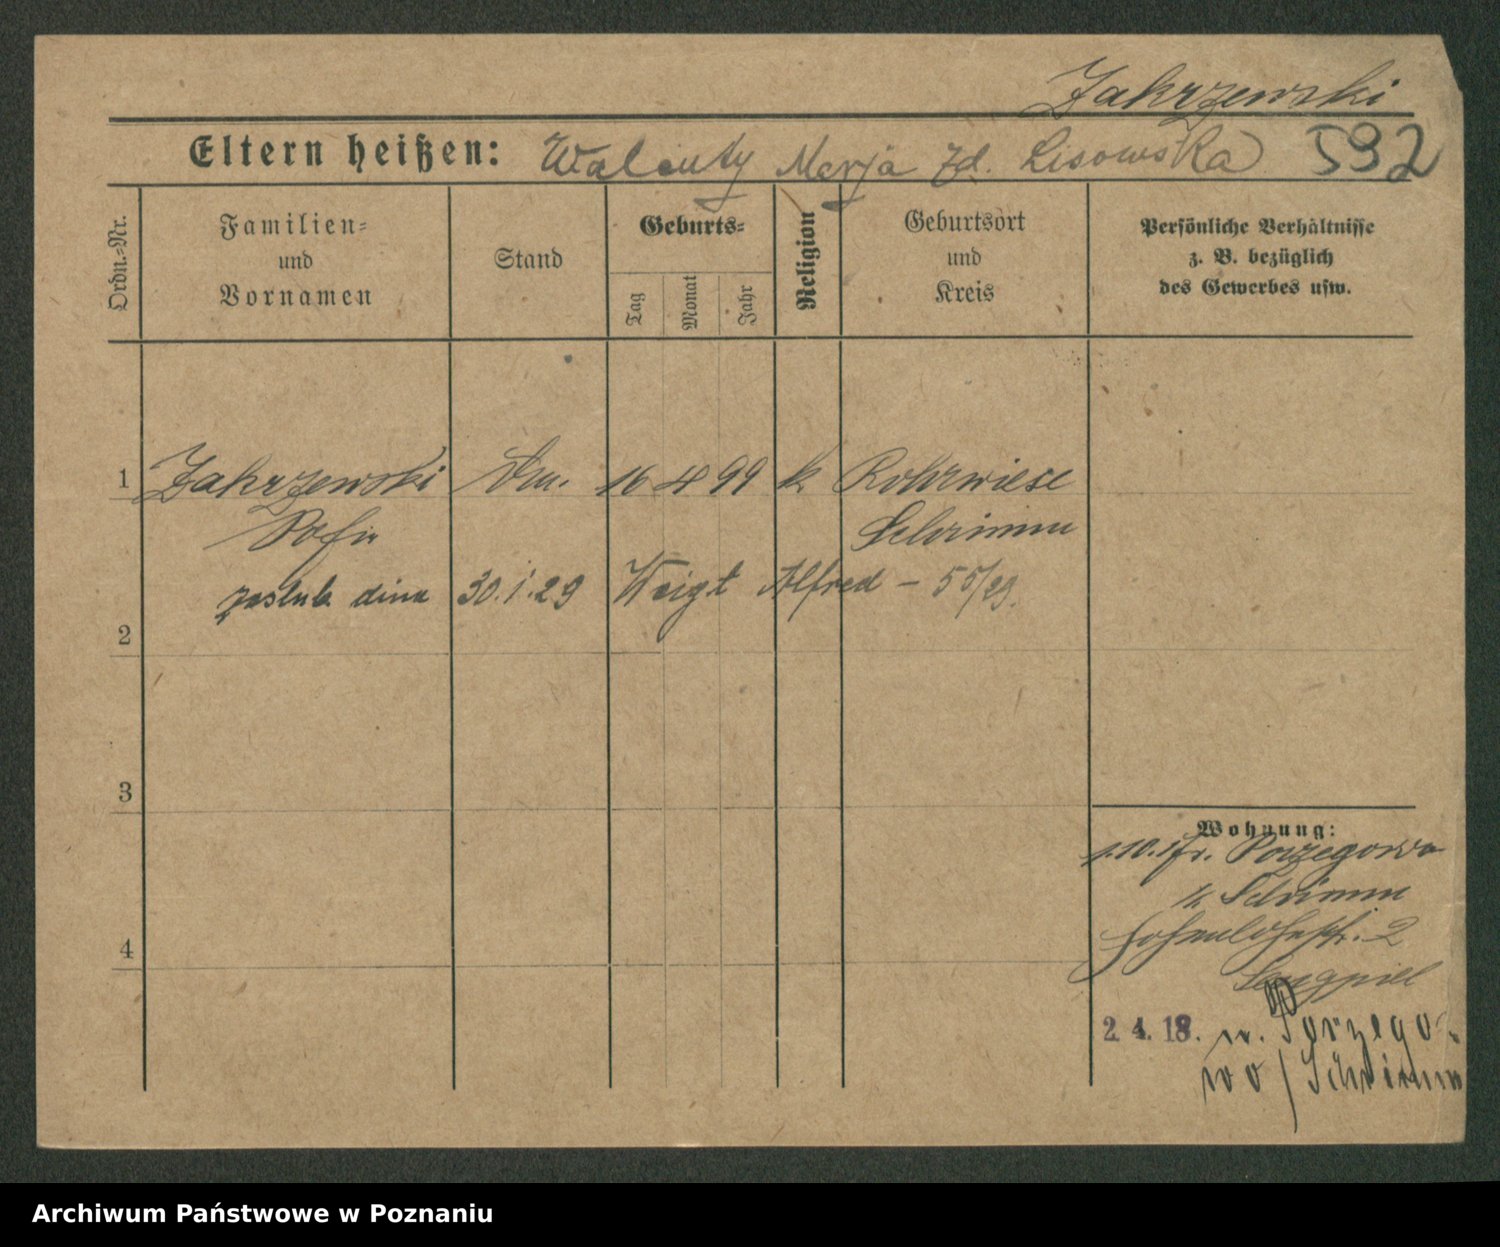 Zakrzewski
Eltern heißen: Walenty Marja zd. Lisowska 592
Ordn.-Nr.
Familien-
und
Vornamen
Stand
Geburts-
Tag
Monat
Jahr
Religion
Geburtsort
und
Kreis
Persönliche Verhältnisse
z. B. bezüglich
des Gewerbes usw.
1 Zakrzewski 16 4 99 k Rohrwiese
Sofie Schrimm
zaślub. dnia 30.1.29 Weigt Alfred – 55/29.
2
3
4
Wohnung:
1.10.17 fr. Porzegowo
k Schrimm
Hohenlohestr. 2
2. 4. 18. n. Porzego-
wo / Schrimm
Archiwum Państwowe w Poznaniu